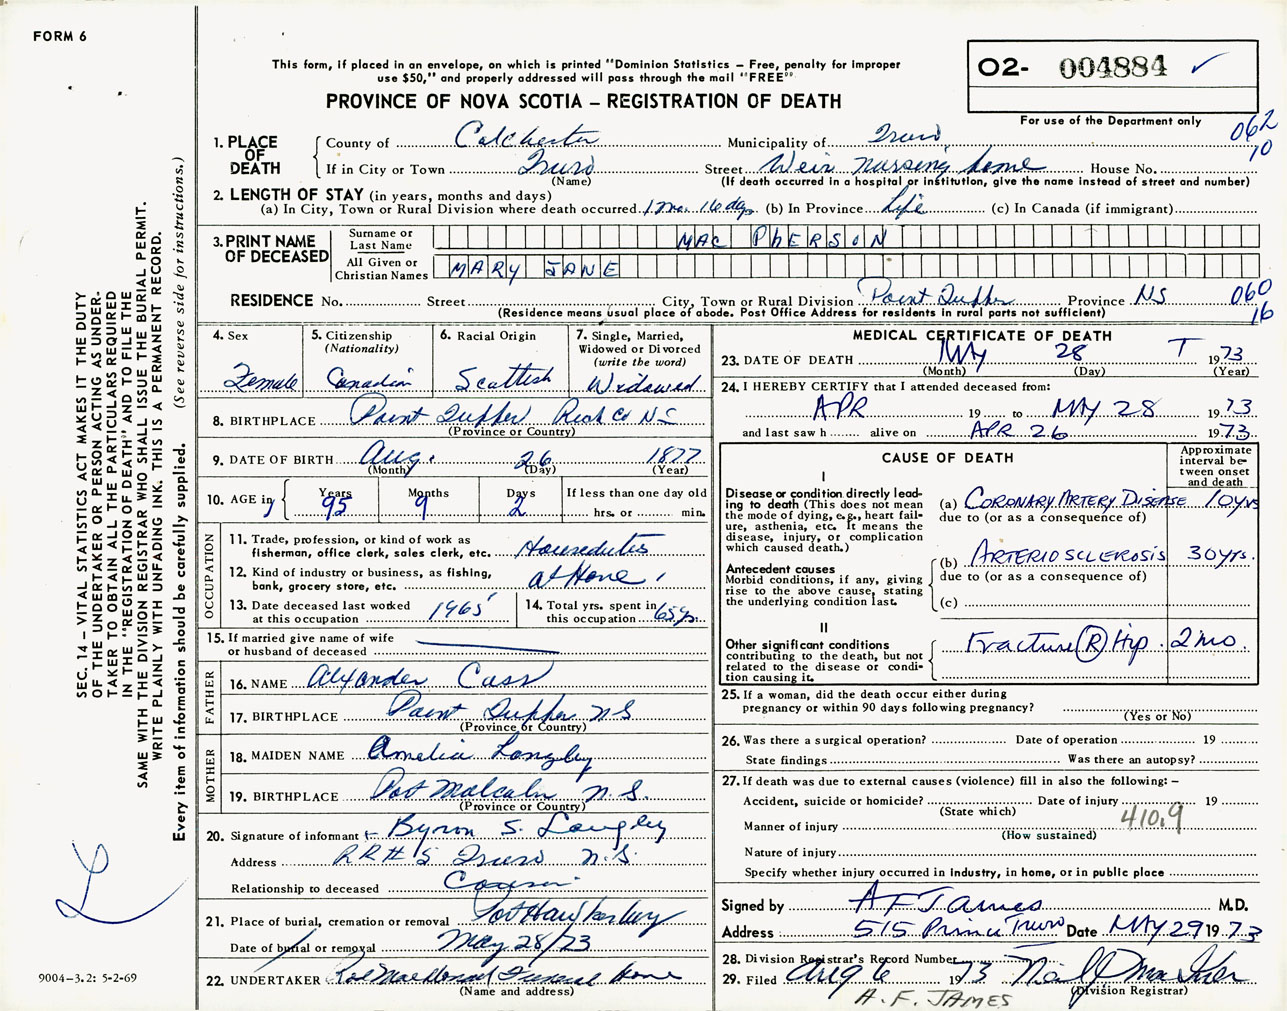 FORM 6
This form, if placed in an envelope, on which is printed "Dominion Statistics – Free, penalty for improper
use $50," and properly addressed will pass through the mail "FREE"
O2- 004884 ✓
PROVINCE OF NOVA SCOTIA – REGISTRATION OF DEATH
For use of the Department only
062
10
1. PLACE OF DEATH
County of Colchester Municipality of Truro
If in City or Town Truro Street Weir nursing home House No.
(Name) (If death occurred in a hospital or institution, give the name instead of street and number)
2. LENGTH OF STAY (in years, months and days)
(a) In City, Town or Rural Division where death occurred 1 Mo. 16 days (b) In Province Life (c) In Canada (if immigrant)
3. PRINT NAME OF DECEASED
Surname or Last Name MAC PHERSON
All Given or Christian Names MARY JANE
RESIDENCE No. Street City, Town or Rural Division Point Tupper Province NS
060
16
(Residence means usual place of abode. Post Office Address for residents in rural parts not sufficient)
4. Sex
Female
5. Citizenship
(Nationality)
Canadian
6. Racial Origin
Scottish
7. Single, Married,
Widowed or Divorced
(write the word)
Widowed
8. BIRTHPLACE Point Tupper Rich Co NS
(Province or Country)
9. DATE OF BIRTH Aug. 26 1877
(Month) (Day) (Year)
10. AGE in
Years Months Days If less than one day old
95 9 2 hrs. or min.
OCCUPATION
11. Trade, profession, or kind of work as
fisherman, office clerk, sales clerk, etc. Houseduties
12. Kind of industry or business, as fishing,
bank, grocery store, etc. at Home
13. Date deceased last worked
at this occupation 1965
14. Total yrs. spent in
this occupation 65 yrs.
15. If married give name of wife
or husband of deceased
FATHER
16. NAME Alexander Cass
17. BIRTHPLACE Point Tupper NS
(Province or Country)
MOTHER
18. MAIDEN NAME Amelia Langley
19. BIRTHPLACE Port Malcolm N.S.
(Province or Country)
20. Signature of informant Byron S. Langley
Address RR# 5 Truro N.S.
Relationship to deceased Cousin
21. Place of burial, cremation or removal Port Hawkesbury
Date of burial or removal May 28/73
22. UNDERTAKER MacDonald Funeral Home
(Name and address)
MEDICAL CERTIFICATE OF DEATH
23. DATE OF DEATH MAY 28 T 1973
(Month) (Day) (Year)
24. I HEREBY CERTIFY that I attended deceased from:
APR 19 to MAY 28 1973
and last saw h alive on APR 26 1973
CAUSE OF DEATH
Approximate
interval be-
tween onset
and death
I
Disease or condition directly lead-
ing to death (This does not mean
the mode of dying, e.g., heart fail-
ure, asthenia, etc. It means the
disease, injury, or complication
which caused death.)
(a) CORONARY ARTERY DISEASE 10 yrs
due to (or as a consequence of)
Antecedent causes
Morbid conditions, if any, giving
rise to the above cause, stating
the underlying condition last.
(b) ARTERIOSCLEROSIS 30 yrs.
due to (or as a consequence of)
(c)
II
Other significant conditions
contributing to the death, but not
related to the disease or condi-
tion causing it.
Fracture (R) Hip. 2 mo.
25. If a woman, did the death occur either during
pregnancy or within 90 days following pregnancy?
(Yes or No)
26. Was there a surgical operation? Date of operation 19
State findings Was there an autopsy?
27. If death was due to external causes (violence) fill in also the following: –
Accident, suicide or homicide? Date of injury 19
(State which)
410.9
Manner of injury
(How sustained)
Nature of injury
Specify whether injury occurred in industry, in home, or in public place
Signed by A F James M.D.
Address 515 Prince Truro Date MAY 29 1973
28. Division Registrar's Record Number
29. Filed Aug 6 1973
(Division Registrar)
A. F. JAMES
SEC. 14 – VITAL STATISTICS ACT MAKES IT THE DUTY
OF THE UNDERTAKER OR PERSON ACTING AS UNDER-
TAKER TO OBTAIN ALL THE PARTICULARS REQUIRED
IN THE "REGISTRATION OF DEATH" AND TO FILE THE
SAME WITH THE DIVISION REGISTRAR WHO SHALL ISSUE THE BURIAL PERMIT.
WRITE PLAINLY WITH UNFADING INK. THIS IS A PERMANENT RECORD.
Every item of information should be carefully supplied. (See reverse side for instructions.)
9004-3.2: 5-2-69